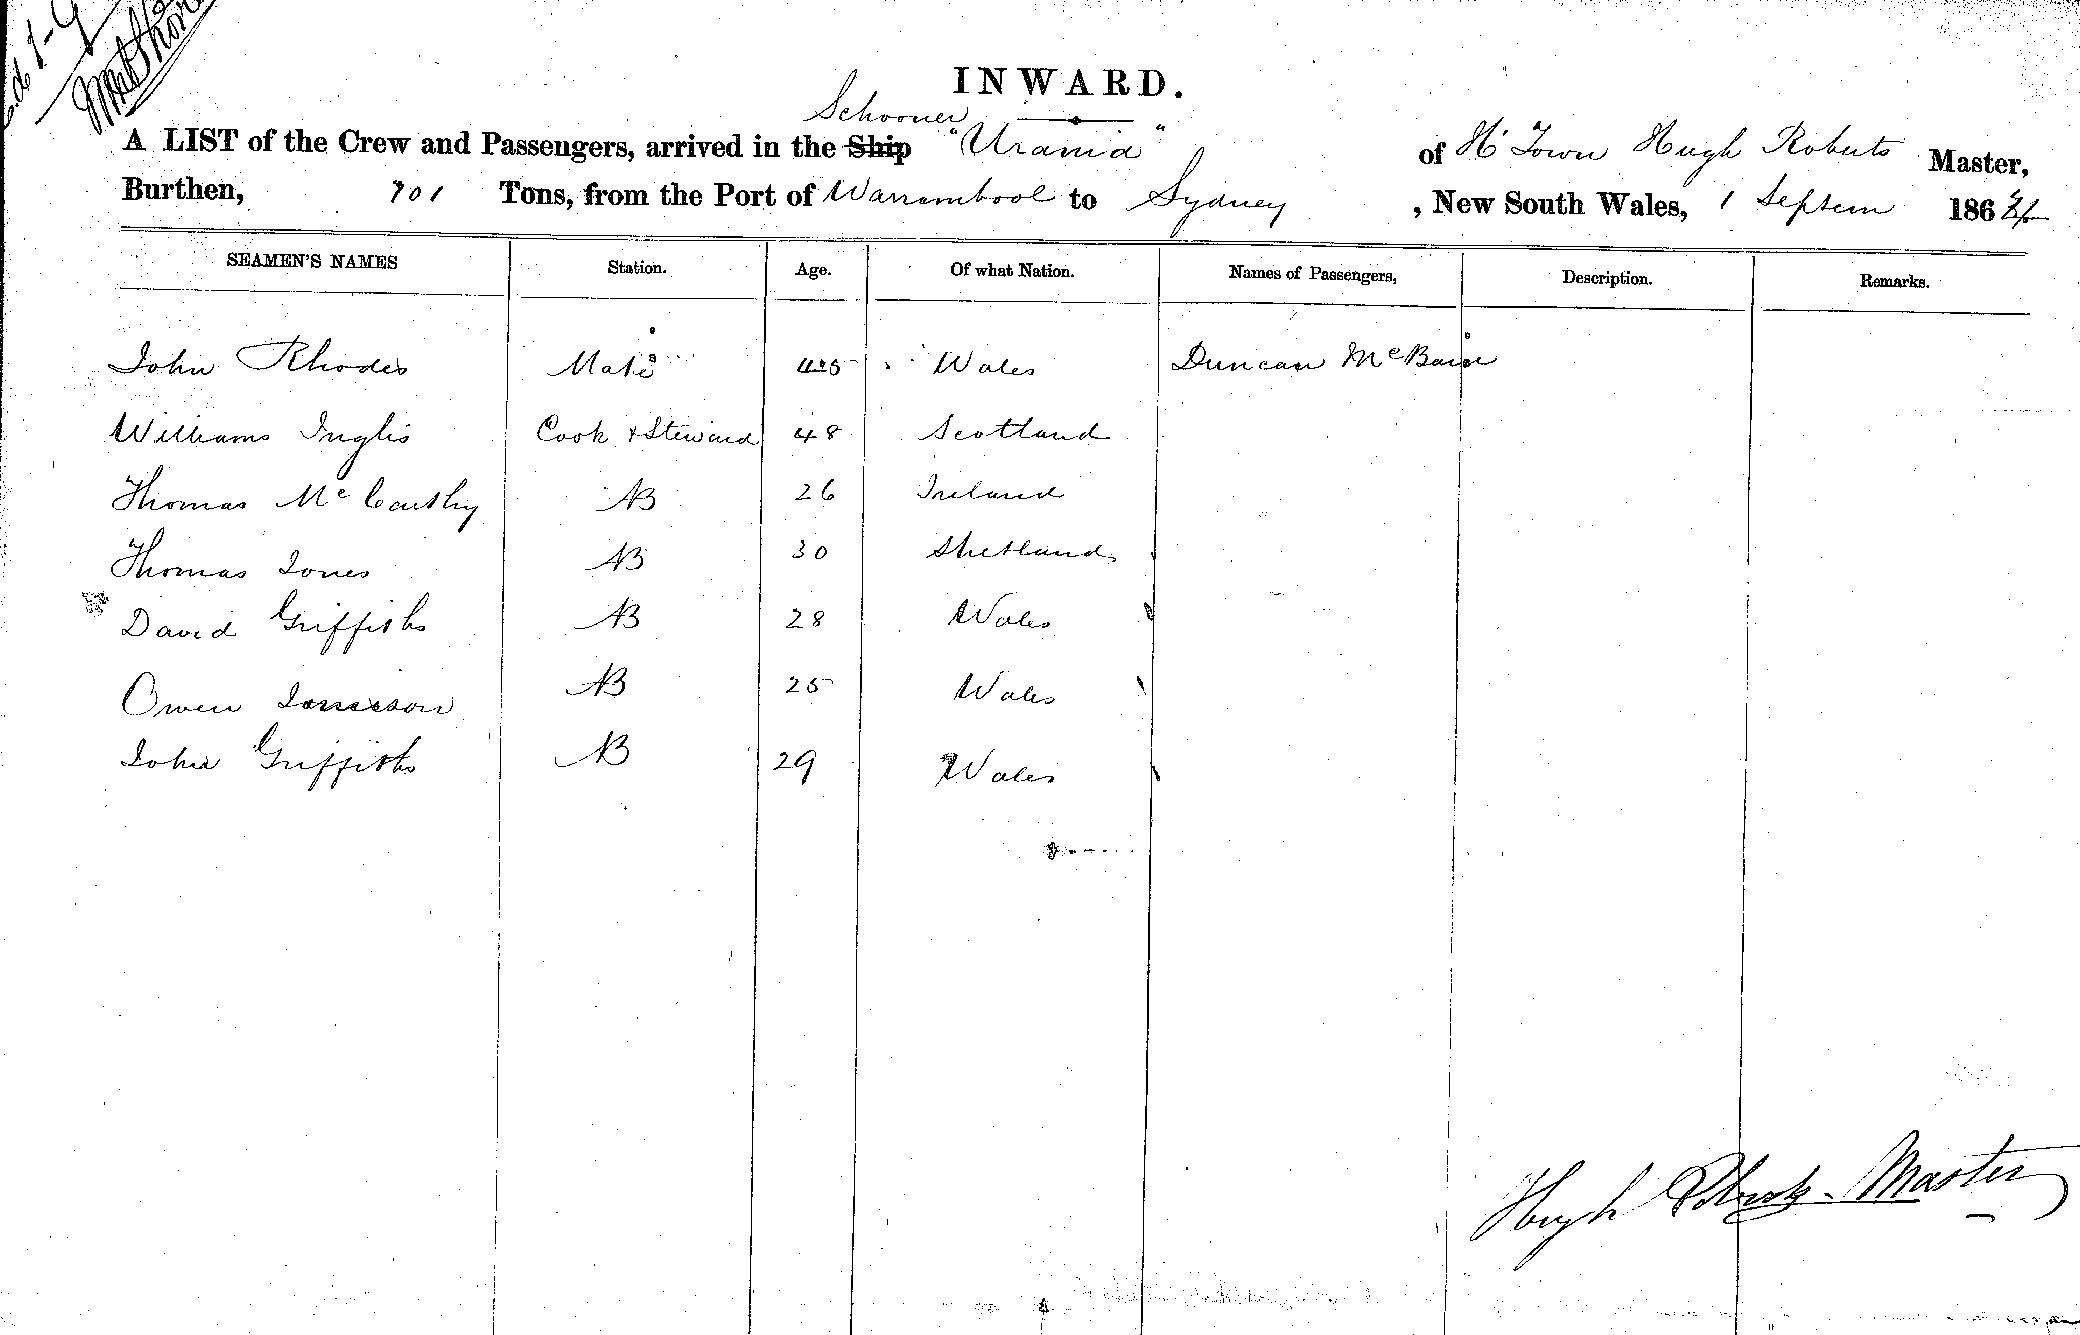 INWARD.
Schooner
A LIST of the Crew and Passengers, arrived in the Ship "Urania" of H Town Hugh Roberts Master,
Burthen, 101 Tons, from the Port of Warrambool to Sydney , New South Wales, 1 Septem 186
SEAMEN'S NAMES Station. Age. Of what Nation. Names of Passengers, Description. Remarks.
John Rhodes Mate 45 Wales Duncan McBain
Williams Inglis Cook & Steward 48 Scotland
Thomas Mc Carthy AB 26 Ireland
Thomas Jones AB 30 Shetland
David Griffiths AB 28 Wales
Owen AB 25 Wales
John Griffiths AB 29 Wales
Hugh Roberts - Master